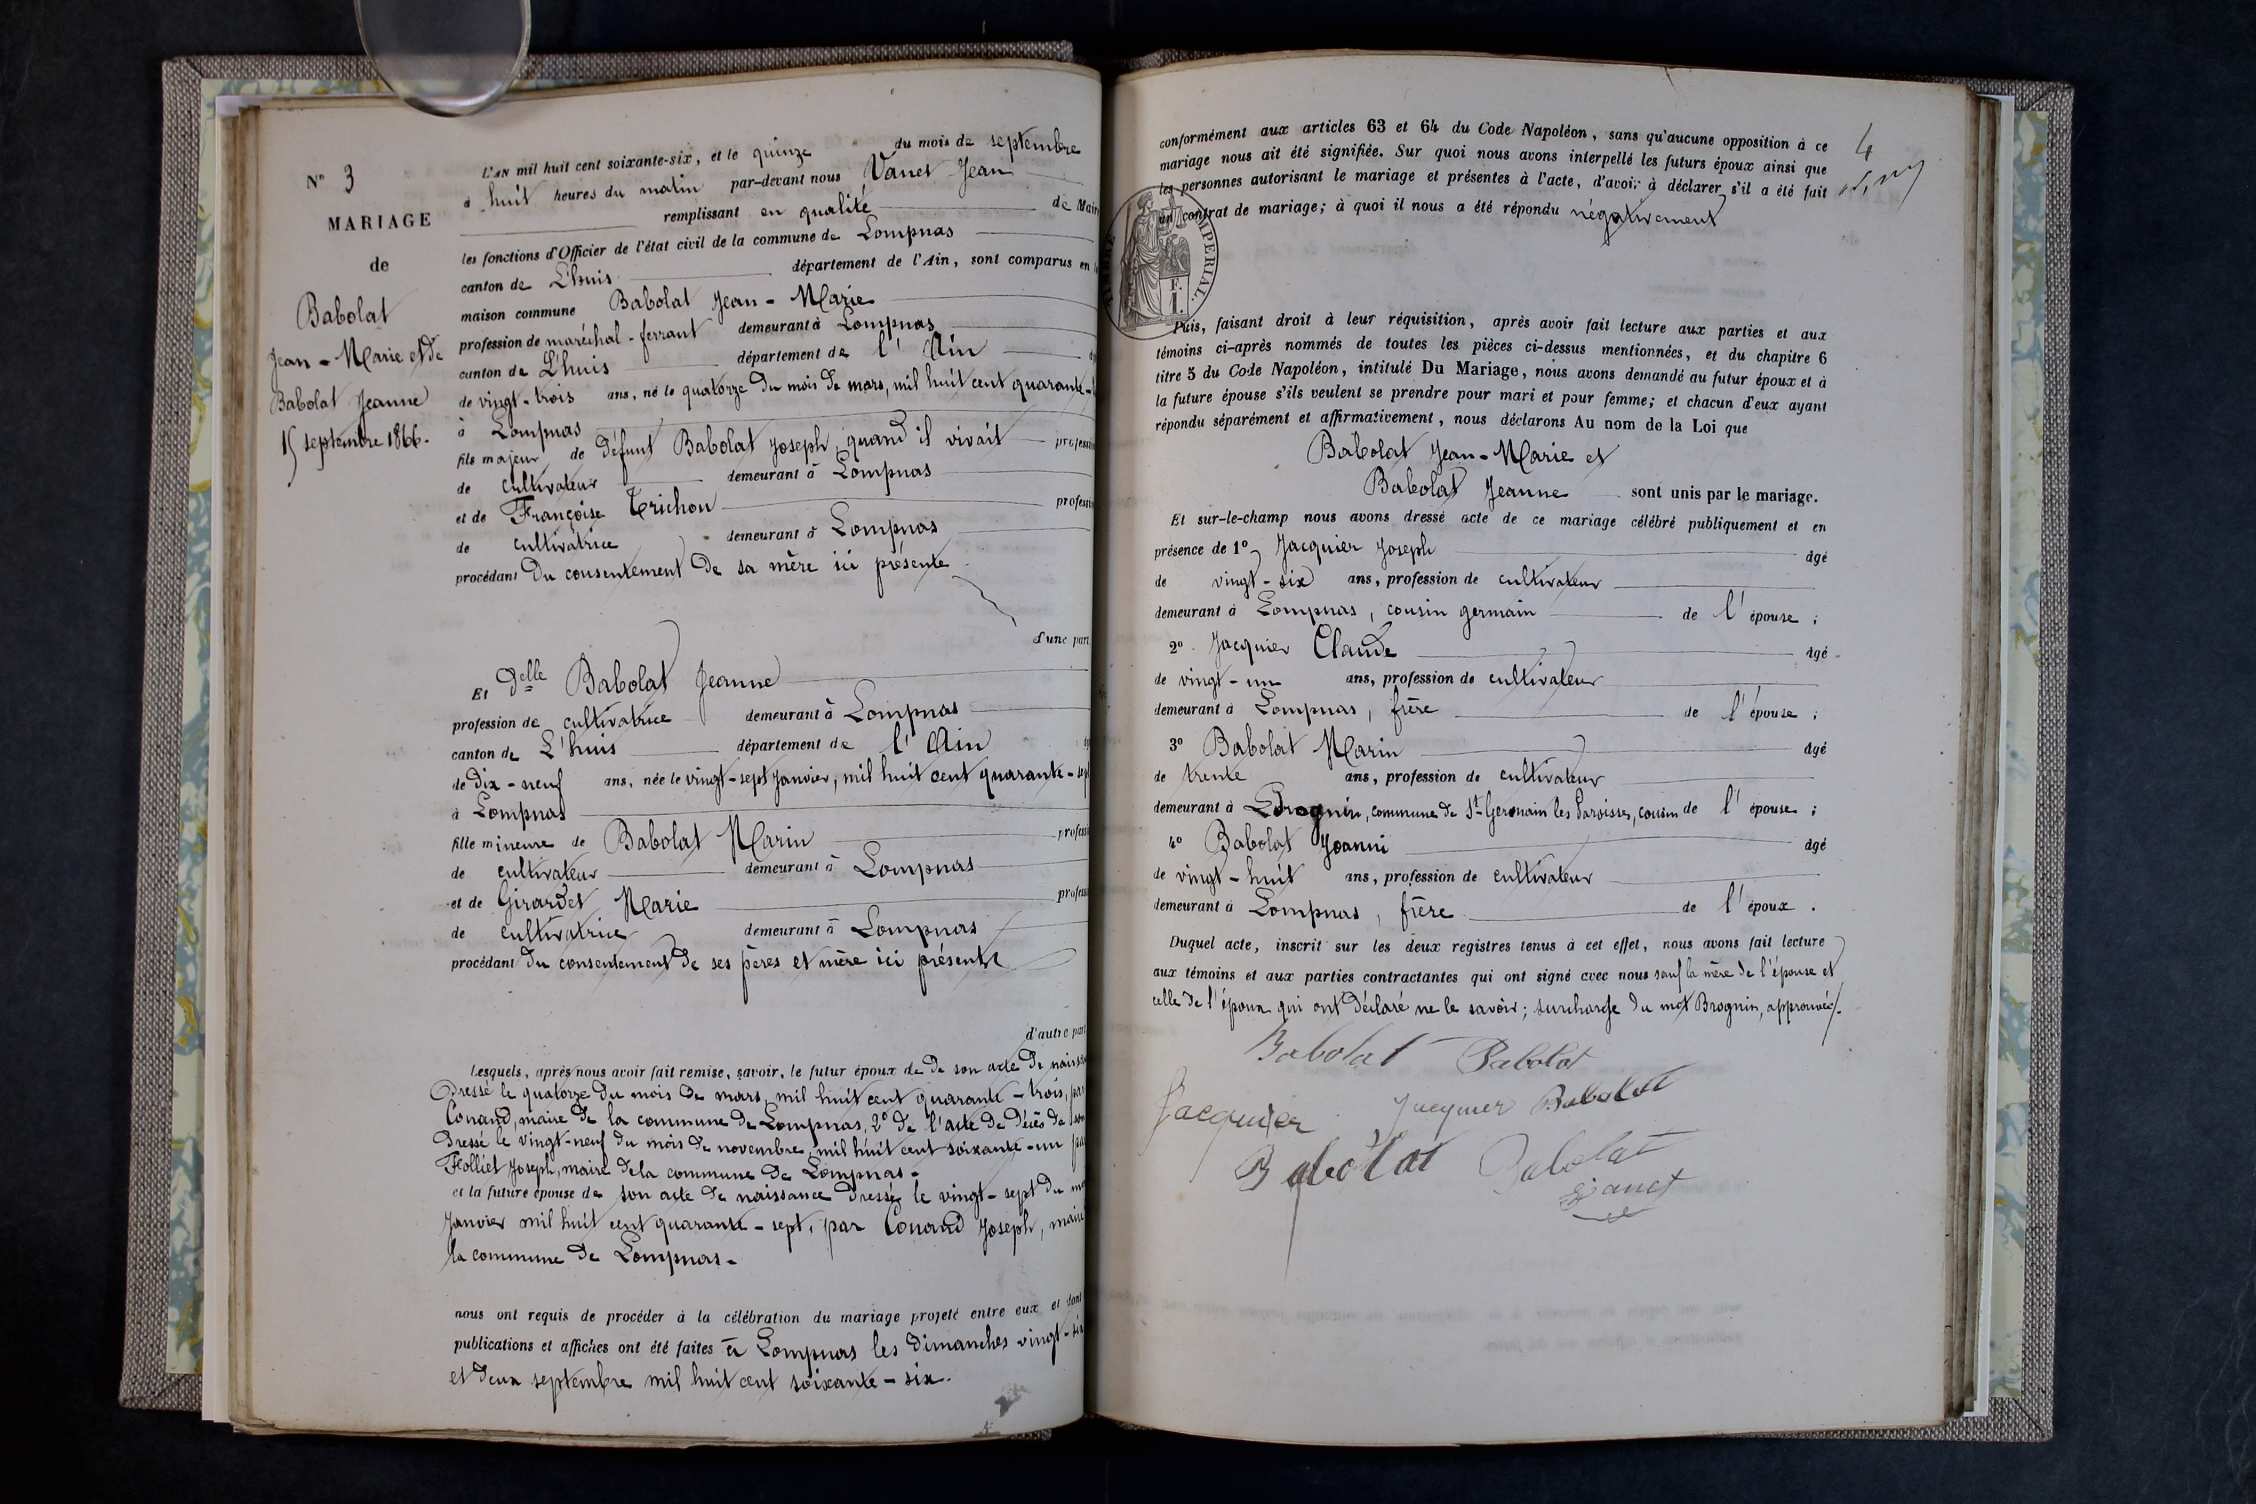 N° 3
MARIAGE
de
Babolat
Jean-Marie et de
Babolat Jeanne
15 septembre 1866.
L'AN mil huit cent soixante-six, et le quinze du mois de septembre
à huit heures du matin par-devant nous Vanet Jean
remplissant en qualité de Maire
les fonctions d'Officier de l'état civil de la commune de Lompnas
canton de L'huis département de l'Ain, sont comparus en
maison commune Babolat Jean-Marie
profession de maréchal-ferrant demeurant à Lompnas
canton de L'huis département de l'Ain
de vingt-trois ans, né le quatorze du mois de mars, mil huit cent quarante-
à Lompnas
fils majeur de défunt Babolat Joseph, quand il vivait profession
de cultivateur demeurant à Lompnas
et de Françoise Trichon profession
de cultivatrice demeurant à Lompnas
procédant du consentement de sa mère ici présente
d'une part
Et Delle Babolat Jeanne
profession de cultivatrice demeurant à Lompnas
canton de L'huis département de l'Ain
de dix-neuf ans, née le vingt-sept Janvier, mil huit cent quarante-sept
à Lompnas
fille mineure de Babolat Marin profession
de cultivateur demeurant à Lompnas
et de Girardet Marie profession
de cultivatrice demeurant à Lompnas
procédant du consentement de ses pères et mère ici présents
d'autre part
Lesquels, après nous avoir fait remise, savoir, le futur époux de de son acte de naiss
Dressé le quatorze du mois de mars, mil huit cent quarante-trois, par
Conand, maire de la commune de Lompnas, 2° de l'acte de décès de son
Dressé le vingt-neuf du mois de novembre, mil huit cent soixante-un par
Folliet Joseph, maire de la commune de Lompnas-
et la future épouse de son acte de naissance dressée le vingt-sept du
Janvier mil huit cent quarante-sept, par Conand Joseph, maire
la commune de Lompnas-
nous ont requis de procéder à la célébration du mariage projeté entre eux et dont
publications et affiches ont été faites à Lompnas les dimanches vingt-six
et deux septembre mil huit cent soixante-six.
4
conformément aux articles 63 et 64 du Code Napoléon, sans qu'aucune opposition à ce
mariage nous ait été signifiée. Sur quoi nous avons interpellé les futurs époux ainsi que
les personnes autorisant le mariage et présentes à l'acte, d'avoir à déclarer s'il a été fait
un contrat de mariage; à quoi il nous a été répondu négativement
TIMBRE IMPERIAL.
F.
1.
Puis, faisant droit à leur réquisition, après avoir fait lecture aux parties et aux
témoins ci-après nommés de toutes les pièces ci-dessus mentionnées, et du chapitre 6
titre 5 du Code Napoléon, intitulé Du Mariage, nous avons demandé au futur époux et à
la future épouse s'ils veulent se prendre pour mari et pour femme; et chacun d'eux ayant
répondu séparément et affirmativement, nous déclarons Au nom de la Loi que
Babolat Jean-Marie et
Babolat Jeanne sont unis par le mariage.
Et sur-le-champ nous avons dressé acte de ce mariage célébré publiquement et en
présence de 1° Jacquier Joseph âgé
de vingt-six ans, profession de cultivateur
demeurant à Lompnas, cousin germain de l'épouse;
2° Jacquier Claude âgé
de vingt-un ans, profession de cultivateur
demeurant à Lompnas, frère de l'épouse;
3° Babolat Marin âgé
de trente ans, profession de cultivateur
demeurant à Brognin, commune de St Germain les Paroisses, cousin de l'épouse;
4° Babolat Joanni âgé
de vingt-huit ans, profession de cultivateur
demeurant à Lompnas, frère de l'époux.
Duquel acte, inscrit sur les deux registres tenus à cet effet, nous avons fait lecture
aux témoins et aux parties contractantes qui ont signé avec nous sauf la mère de l'épouse et
celle de l'époux qui ont déclaré ne le savoir; surcharge du mot Brognin, approuvée.
Babolat Babolat
Jacquier Jacquier Babolat
Babolat Babolat
Vanet